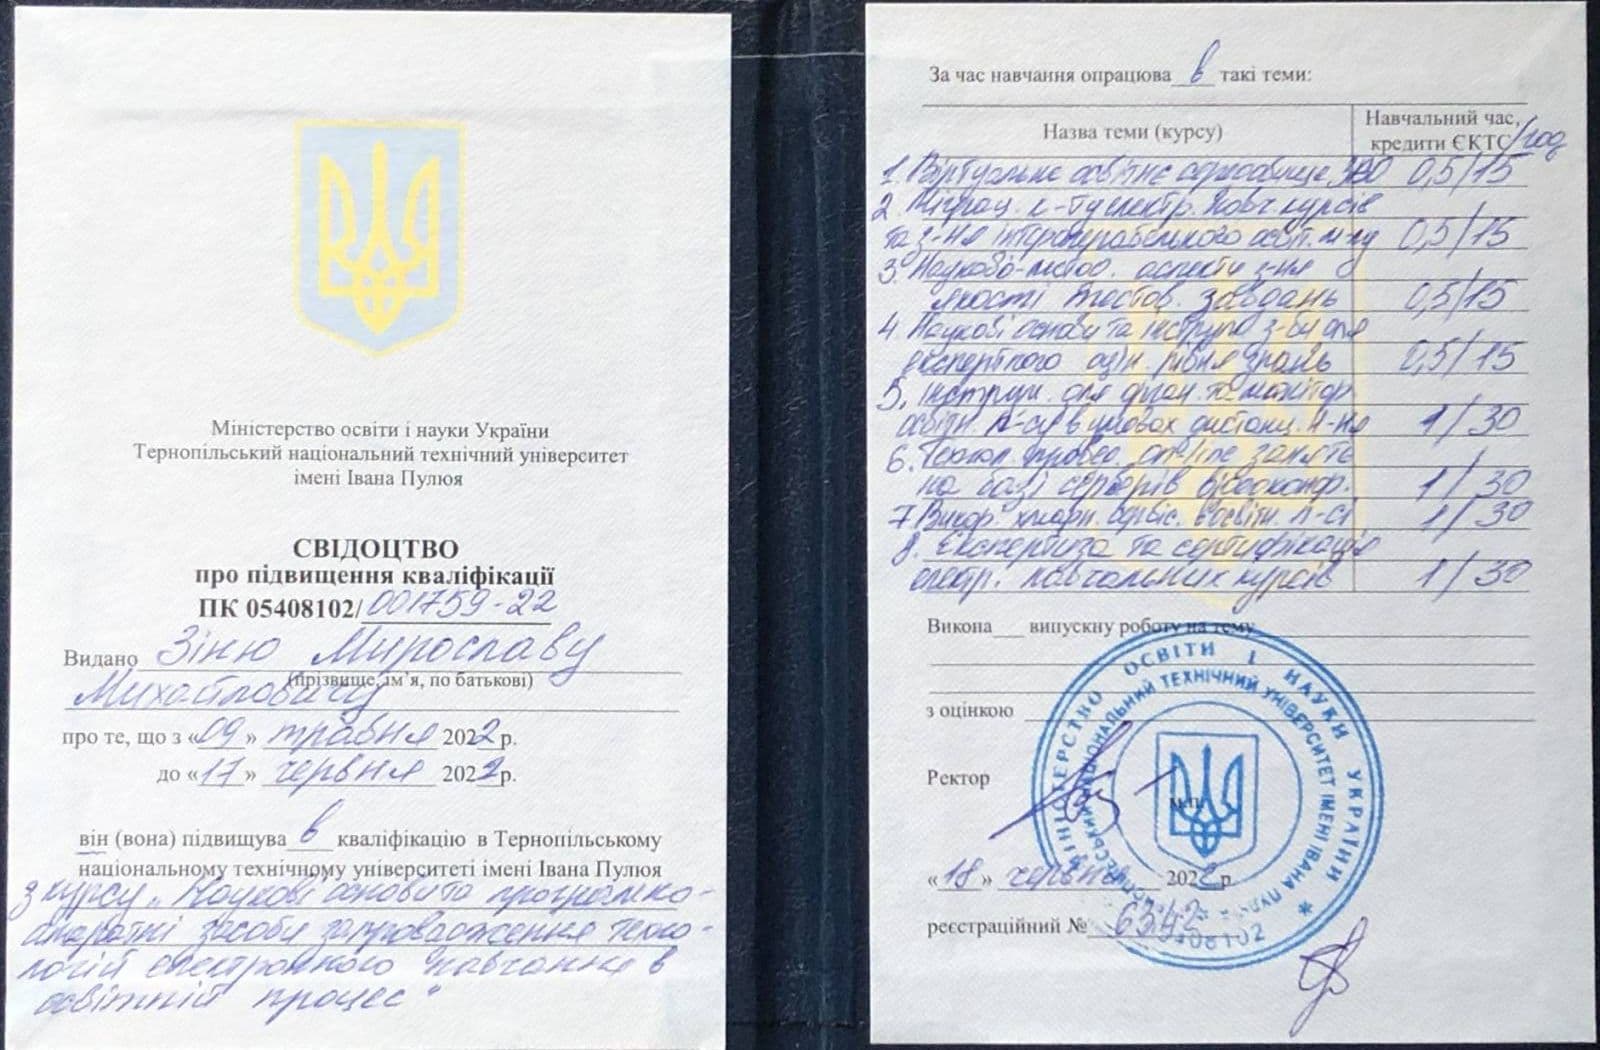 Міністерство освіти і науки України
Тернопільський національний технічний університет
імені Івана Пулюя
СВІДОЦТВО
про підвищення кваліфікації
ПК 05408102/001759-22
Видано Зіню Мирославу
(прізвище, ім'я, по батькові)
Михайловичу
про те, що з «09» травня 2022р.
до «17» червня 2022р.
він (вона) підвищува в кваліфікацію в Тернопільському
національному технічному університеті імені Івана Пулюя
з курсу „Наукові основи та програмно-
апаратні засоби запровадження техно-
логій електронного навчання в
освітній процес"
За час навчання опрацюва в такі теми:
Назва теми (курсу)
Навчальний час,
кредити ЄКТС/год
1. Віртуальне освітнє середовище ЗВО 0,5/15
2. Міграц. к-ту електр. навч. курсів
та з-ня інтероперабельного освіт. 0,5/15
3. Науково-метод. аспекти з-ня
якості тестов. завдань 0,5/15
4. Наукові основи та інструм. з-би для
експертного оцін. рівня знань 0,5/15
5. Інструм. для та монітор.
освітн. п-су в умовах дистанц. н-ня 1/30
6. Технол. провед. on-line занять
на базі серверів відеоконф. 1/30
7. Викор. хмарн. сервіс. в освітн. п-сі 1/30
8. Експертиза та сертифікація
електр. навчальних курсів 1/30
Викона випускну роботу на тему
з оцінкою
Ректор
М.П.
«18» червня 2022р
реєстраційний № 6342
МІНІСТЕРСТВО ОСВІТИ І НАУКИ УКРАЇНИ *
НАЦІОНАЛЬНИЙ ТЕХНІЧНИЙ УНІВЕРСИТЕТ ІМЕНІ ІВАНА ПУЛЮЯ
05408102